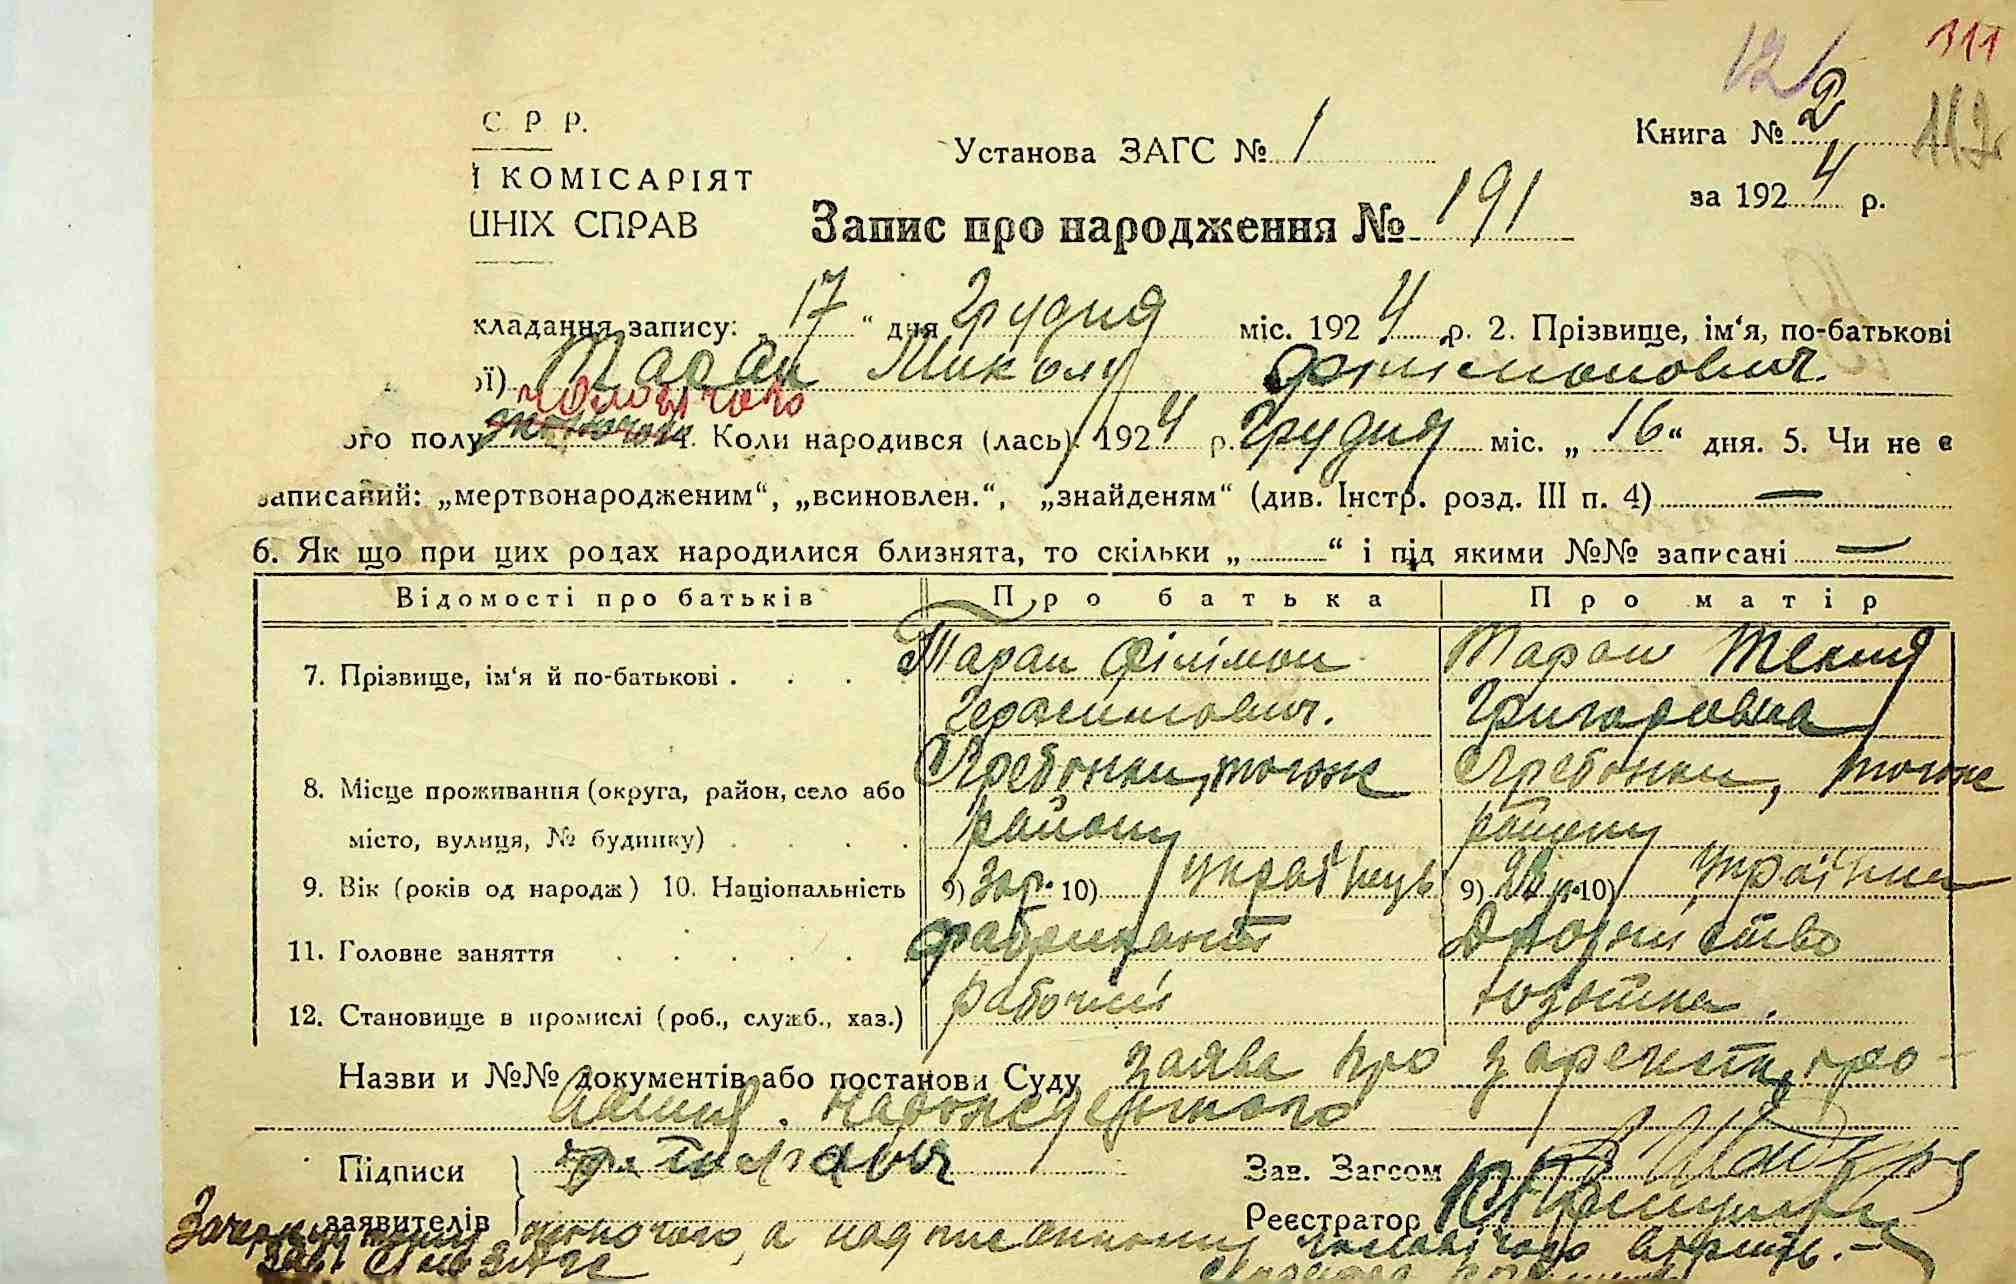 12
111
112
С. Р. Р.
Установа ЗАГС № 1
Книга № 2
І КОМІСАРІЯТ
ШНІХ СПРАВ
за 1924 р.
Запис про народження № 191
кладання запису: „ 17 “ дня Грудня міс. 1924 р. 2. Прізвище, ім‘я, по-батькові
ої) Таран Микола Філімонович.
чоловічого
ого полу жіночого 4. Коли народився (лась) 1924 р. Грудня міс. „ 16 “ дня. 5. Чи не є
записаний: „мертвонародженим“, „всиновлен.“, „знайденям“ (див. Інстр. розд. III п. 4) —
6. Як що при цих родах народилися близнята, то скільки „ “ і під якими №№ записані —
Відомості про батьків Про батька Про матір
7. Прізвище, ім‘я й по-батькові . . . Таран Філімон Таран Текля
Герасимович. Григоровна
8. Місце проживання (округа, район, село або Гребонки, тогож Гребонки, тогож
місто, вулиця, № будинку) . . . . району району
9. Вік (років од народж) 10. Національність 9) 30р. 10) українець 9) 28 р. 10) українка
11. Головне заняття . . . . . фабрикант
12. Становище в промислі (роб., служб., хаз.) рабочий хозяйка.
Назви и №№ документів або постанови Суду заява про зарегистріро-
вання народженного
Підписи
Зав. Загсом
заявителів
Реєстратор
жіночого, а надписанному чоловічого вірить. —